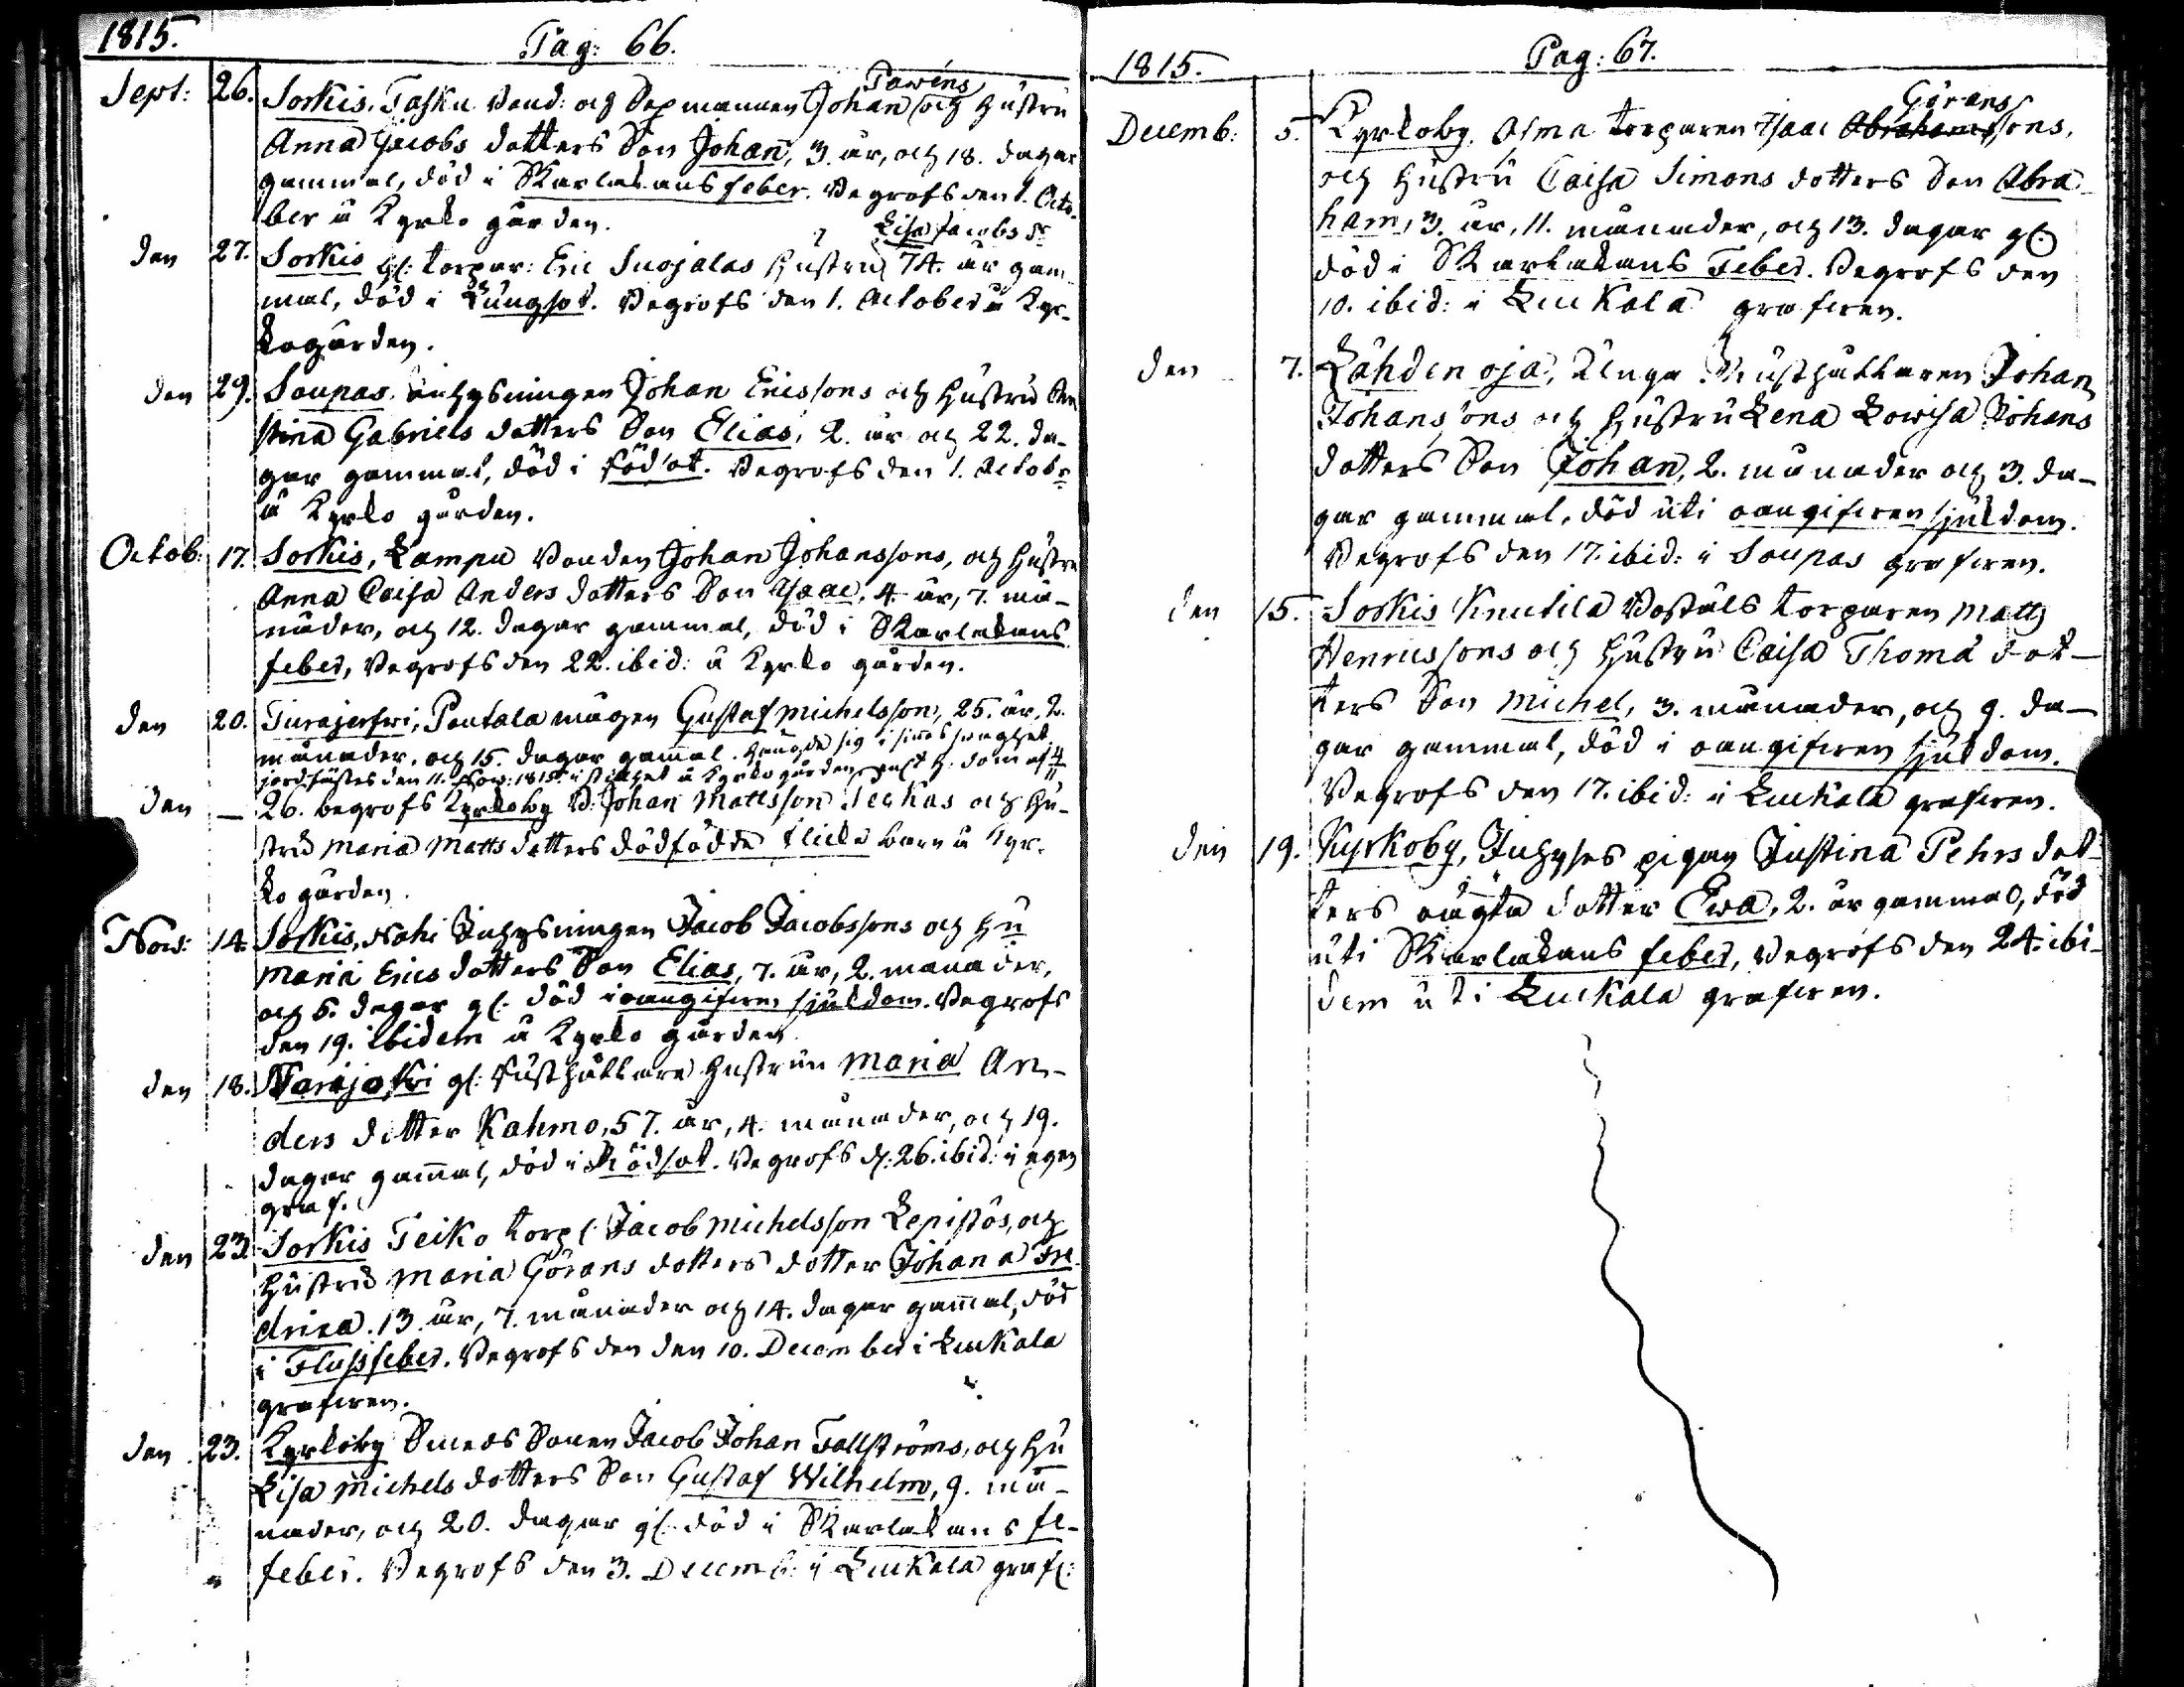 1815.
Pag: 66.
Sept: 26. Sorkis. Tasku Bond: och Sexmannen Johan Pawéns och Hustru
Anna Jacobs dotters Son Johan, 3. år, och 18. dagar
gammal, död i Skarlakansfeber. Begrofs den 1. Octo-
ber å Kyrko gården.
den 27. Sorkis gl: torpar: Eric Suojalas Hustru Lisa Jacobs dr 74. år gam
mal, död i Lungsot. Begrofs den 1. October å Kyr-
kogården.
den 29. Soupas. inhysningen Johan Ericssons och Hustru Chri
stina Gabriels dotters Son Elias, 2. år och 22. da-
gar gammal, död i rödsot. Begrofs den 1. Octobr
å Kyrko gården.
Octob: 17. Sorkis, Lampu Bonden Johan Johanssons, och Hustru
Anna Caisa Anders dotters Son Isaac, 4. år, 7. må-
nader, och 12. dagar gammal, död i Skarlakans
feber, Begrofs den 22. ibid: å Kyrko gården.
den 20. Turajerfwi, Pentala mågen Gustaf Michelsson, 25. år, 2.
månader, och 15. dagar gammal. hängde sig i sinnes swaghet
jordfästes den 11. Nov: 1815. i stillhet å Kyrko gården
den — 26. begrofs Kyrkoby B: Johan Mattsson Terkas och Hu-
stru Maria Matts dotters dödfödde flicko barn å Kyr-
ko gården.
Nov: 14. Sorkis, Nohi Inhysningen Jacob Jacobssons och Hu
Maria Erics dotters Son Elias, 7. år, 2. månader,
och 6. dagar gl: död i oangifven sjukdom. Begrofs
den 19. ibidem å Kyrko gården
den 18. Narajoki gl: Rusthållare Hustrun Maria An-
ders dotter Kahmo, 57. år, 4. månader, och 19.
dagar gammal, död i Rödsot. Begrofs d: 26. ibid: i egen
graf.
den 23. Sorkis Teiko torp: Jacob Michelsson Lepistös, och
Hustru Maria Görans dotters dotter Johana Fre
drica. 13. år, 7. månader och 14. dagar gammal, död
i Flussfeber. Begrofs den den 10. December i Luukala
grafven.
den 23. Kyrkoby Smeds Sonen Jacob Johan Fallströms, och Hu
Lisa Michels dotters Son Gustaf Wilhelm, 9. må-
nader, och 20. dagar gl: död i Skarlakans fe-
feber. Begrofs den 3. Decemb: i Luukala graf:
1815.
Pag: 67.
Decemb: 5. Kyrkoby. Asma torparen Isaac Abrahamssons, Görans
och Hustru Caisa Simons dotters Son Abra-
ham, 3. år, 11. månader, och 13. dagar gl:
död i Skarlakans Feber. Begrofs den
10. ibid: i Luukala grafven.
den 7. Lähdenoja, Unga Rusthållaren Johan
Johanssons och Hustru Lena Lowisa Johans
dotters Son Johan, 2. månader och 3. da-
gar gammal, död uti oangifven sjukdom.
Begrofs den 17. ibid: i Soupas grafven.
den 15. Sorkis Knutila Boställs torparen Matts
Henricssons och Hustru Caisa Thomæ dot-
ters Son Michel, 3. månader, och 9. da-
gar gammal, död i oangifven sjukdom.
Begrofs den 17. ibid: i Luukala grafven.
den 19. Kyrkoby, Inhyses pigan Justina Pehrs dot-
ters oägta dotter Ewa, 2. år gammal, död
uti Skarlakans feber, Begrofs den 24. ibi-
dem uti Luukala grafven.